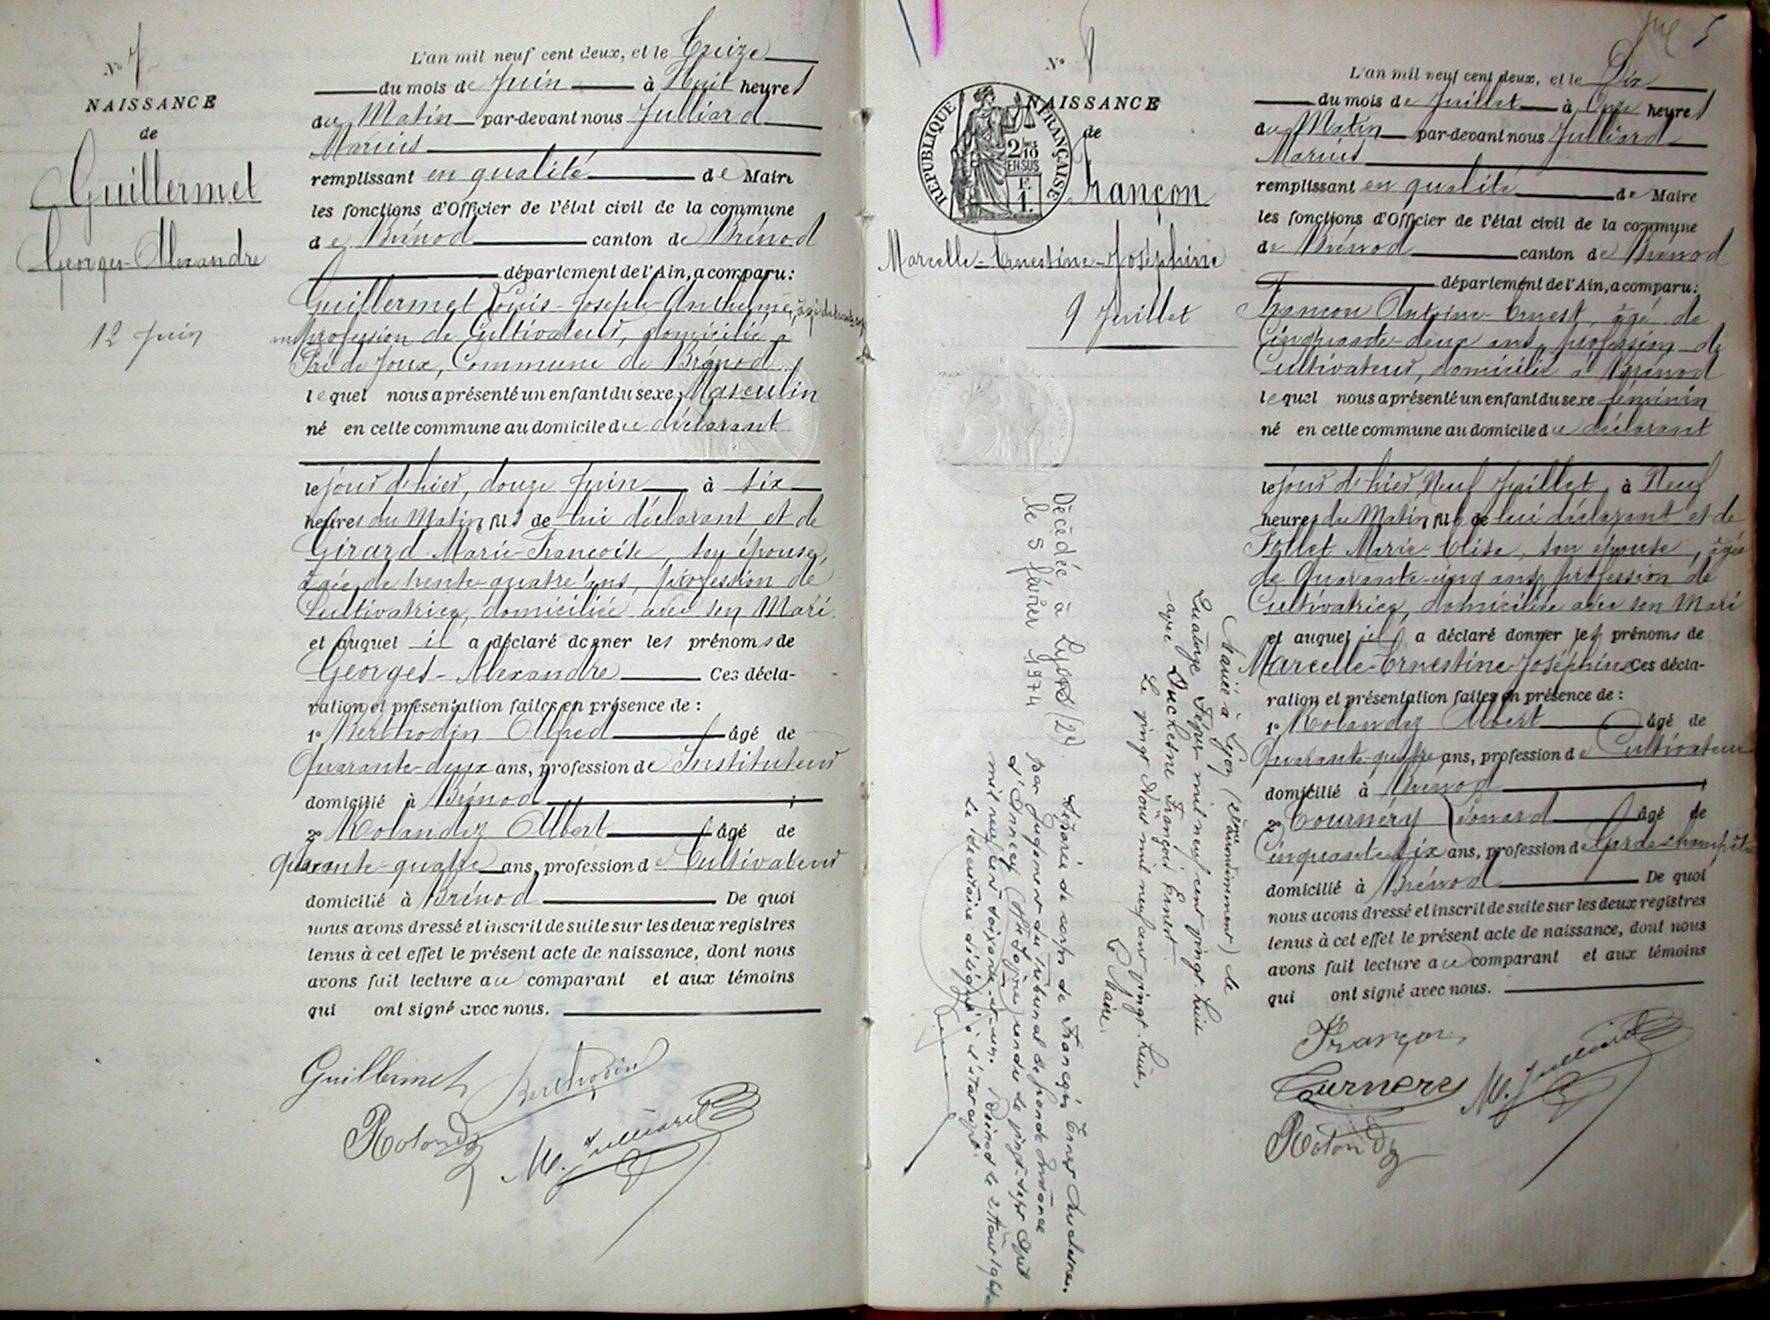 N° 7
NAISSANCE
de
Guillermet
Georges-Alexandre
12 Juin
L'an mil neuf cent deux, et le Treize
du mois de Juin à Huit heures
du Matin par-devant nous Julliard
Marius
remplissant en qualité de Maire
les fonctions d'Officier de l'état civil de la commune
de Brénod canton de Brénod
département de l'Ain, a comparu:
Guillermet Louis-Joseph-Anthelme, âgé de
profession de Cultivateur, domicilié à
Pré de Joux, Commune de Brénod
lequel nous a présenté un enfant du sexe Masculin
né en cette commune au domicile du déclarant
le jour d'hier, douze Juin à six
heures du Matin, fils de lui déclarant et de
Girard Marie-Françoise, son épouse,
âgée de trente-quatre ans, profession de
Cultivatrice, domiciliée avec son Mari.
et auquel il a déclaré donner les prénoms de
Georges-Alexandre Ces décla-
ration et présentation faites en présence de :
1° Berthodin Alfred âgé de
Quarante-deux ans, profession de Instituteur
domicilié à Brénod ;
2° Rolandez Albert âgé de
Quarante-quatre ans, profession de Cultivateur
domicilié à Brénod De quoi
nous avons dressé et inscrit de suite sur les deux registres
tenus à cet effet le présent acte de naissance, dont nous
avons fait lecture au comparant et aux témoins
qui ont signé avec nous.
Guillermet Berthodin
Rolandez M. Julliard
5
N° 8
NAISSANCE
de
RÉPUBLIQUE FRANÇAISE
2/10 EN SUS
Françon
Marcelle-Ernestine-Joséphine
9 Juillet
Décédée à Lyon (2e)
le 5 février 1974
Mariée à Lyon (2ème arrondissement) le
Quatorze Février mil neuf cent vingt-huit
avec Duchesne François Ernest
Le vingt Août mil neuf cent vingt-huit,
Le Maire.
Séparée de corps de François Ernest Duchesne
par Jugement du tribunal de grande Instance
d'Annecy (Hte Savoie) rendu le vingt-sept Avril
mil neuf cent soixante-et-un. Brénod le 2 Août 1961
Le Secrétaire délégué à l'état civil.
L'an mil neuf cent deux, et le Dix
du mois de Juillet à Onze heures
du Matin par-devant nous Julliard
Marius
remplissant en qualité de Maire
les fonctions d'Officier de l'état civil de la commune
de Brénod canton de Brénod
département de l'Ain, a comparu:
Françon Antoine-Ernest, âgé de
Cinquante-deux ans, profession de
Cultivateur, domicilié à Brénod
lequel nous a présenté un enfant du sexe féminin
né en cette commune au domicile du déclarant
le jour d'hier Neuf Juillet, à Neuf
heures du Matin, fille de lui déclarant et de
Follet Marie-Elise, son épouse, âgée
de Quarante-cinq ans, profession de
Cultivatrice, domiciliée avec son Mari
et auquel il a déclaré donner les prénoms de
Marcelle-Ernestine-Joséphine Ces décla-
ration et présentation faites en présence de :
1° Rolandez Albert âgé de
Quarante-quatre ans, profession de Cultivateur
domicilié à Brénod ;
2° Tournéry Léonard âgé de
Cinquante-six ans, profession de Garde champêtre
domicilié à Brénod De quoi
nous avons dressé et inscrit de suite sur les deux registres
tenus à cet effet le présent acte de naissance, dont nous
avons fait lecture au comparant et aux témoins
qui ont signé avec nous.
Françon
Turnere M. Julliard
Rolandez